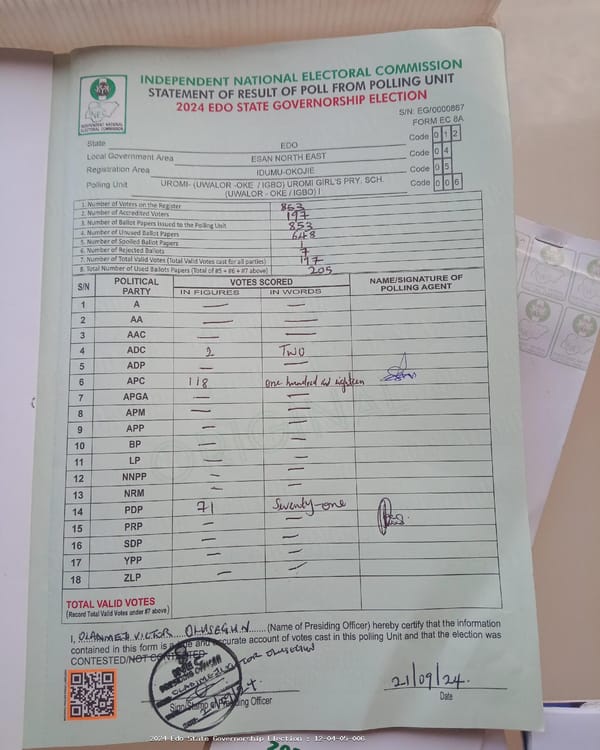 INDEPENDENT NATIONAL ELECTORAL COMMISSION
STATEMENT OF RESULT OF POLL FROM POLLING UNIT
2024 EDO STATE GOVERNORSHIP ELECTION
S/N: EG/0000867
FORM EC 8A
INEC
INDEPENDENT NATIONAL
ELECTORAL COMMISSION
State EDO Code 0 1 2
Local Government Area ESAN NORTH EAST Code 0 4
Registration Area IDUMU-OKOJIE Code 0 5
Polling Unit UROMI- (UWALOR -OKE / IGBO) UROMI GIRL'S PRY. SCH. (UWALOR - OKE / IGBO) I Code 0 0 6
1. Number of Voters on the Register 853
2. Number of Accredited Voters 197
3. Number of Ballot Papers Issued to the Polling Unit 853
4. Number of Unused Ballot Papers 648
5. Number of Spoiled Ballot Papers 1
6. Number of Rejected Ballots 7
7. Number of Total Valid Votes (Total Valid Votes cast for all parties) 197
8. Total Number of Used Ballots Papers (Total of #5 + #6 + #7 above) 205
S/N POLITICAL PARTY VOTES SCORED NAME/SIGNATURE OF POLLING AGENT
IN FIGURES IN WORDS
1 A — —
2 AA — —
3 AAC — —
4 ADC 2 TWO
5 ADP — —
6 APC 118 one hundred and eighteen
7 APGA — —
8 APM — —
9 APP — —
10 BP — —
11 LP — —
12 NNPP — —
13 NRM — —
14 PDP 71 Seventy-one
15 PRP — —
16 SDP — —
17 YPP — —
18 ZLP — —
TOTAL VALID VOTES
(Record Total Valid Votes under #7 above)
I, OLANMEJI VICTOR OLUSEGUN (Name of Presiding Officer) hereby certify that the information
contained in this form is a true and accurate account of votes cast in this polling Unit and that the election was
CONTESTED/NOT CONTESTED
PRESIDING OFFICER
VICTOR OLUSEGUN
21/09/24.
Sign/Stamp of Presiding Officer Date
2024 Edo State Governorship Election : 12-04-05-006